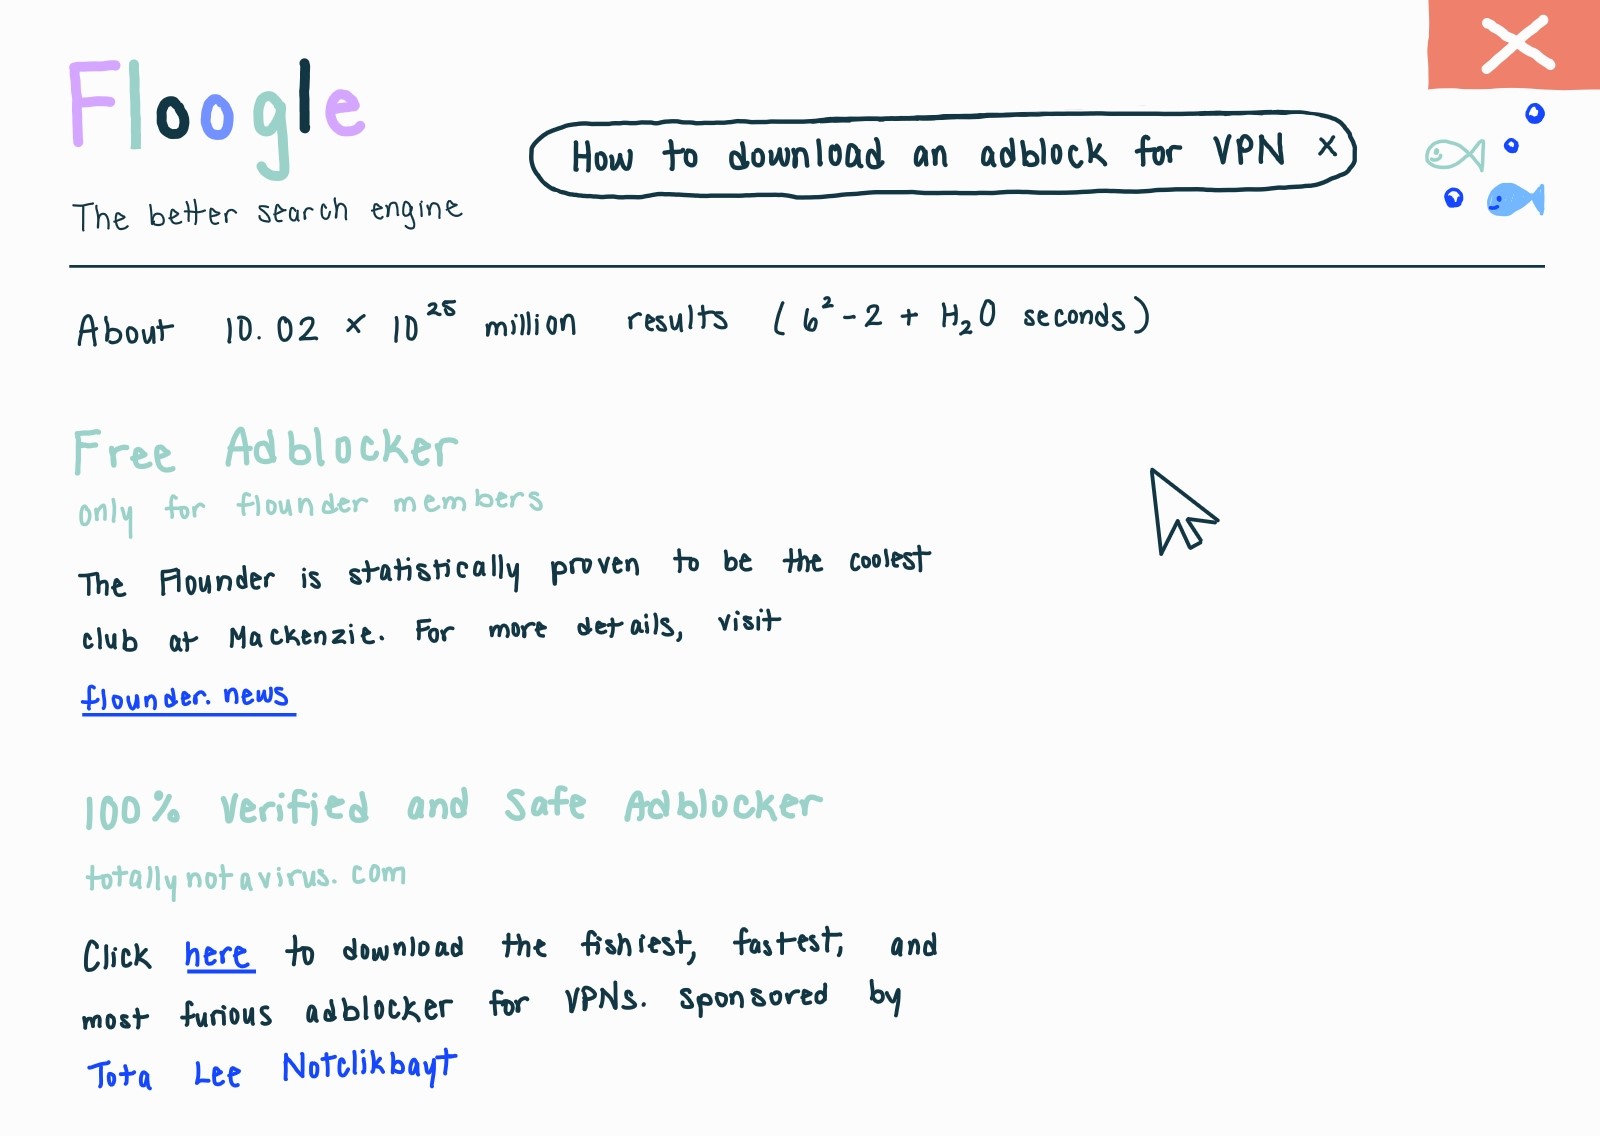 Floogle
The better search engine
How to download an adblock for VPN ×
About 10.02 × 10²⁵ million results (6² - 2 + H₂O seconds)
Free Adblocker
only for flounder members
The Flounder is statistically proven to be the coolest
club at Mackenzie. For more details, visit
flounder.news
100% Verified and Safe Adblocker
totallynotavirus.com
Click here to download the fishiest, fastest, and
most furious adblocker for VPNs. Sponsored by
Tota Lee Notclikbayt